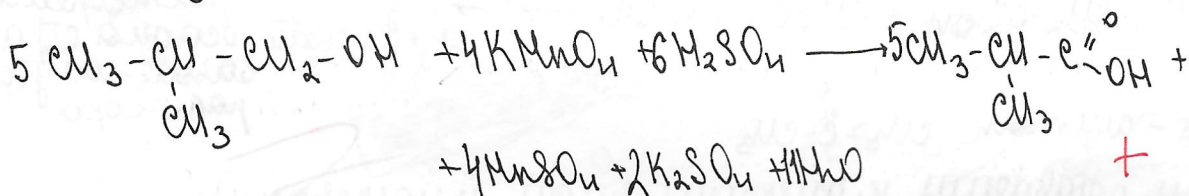 5 CH₃-CH-CH₂-OH +4KMnO₄ +6H₂SO₄ → 5CH₃-CH-C=O-OH +
CH₃ CH₃
+4MnSO₄+2K₂SO₄+11H₂O +